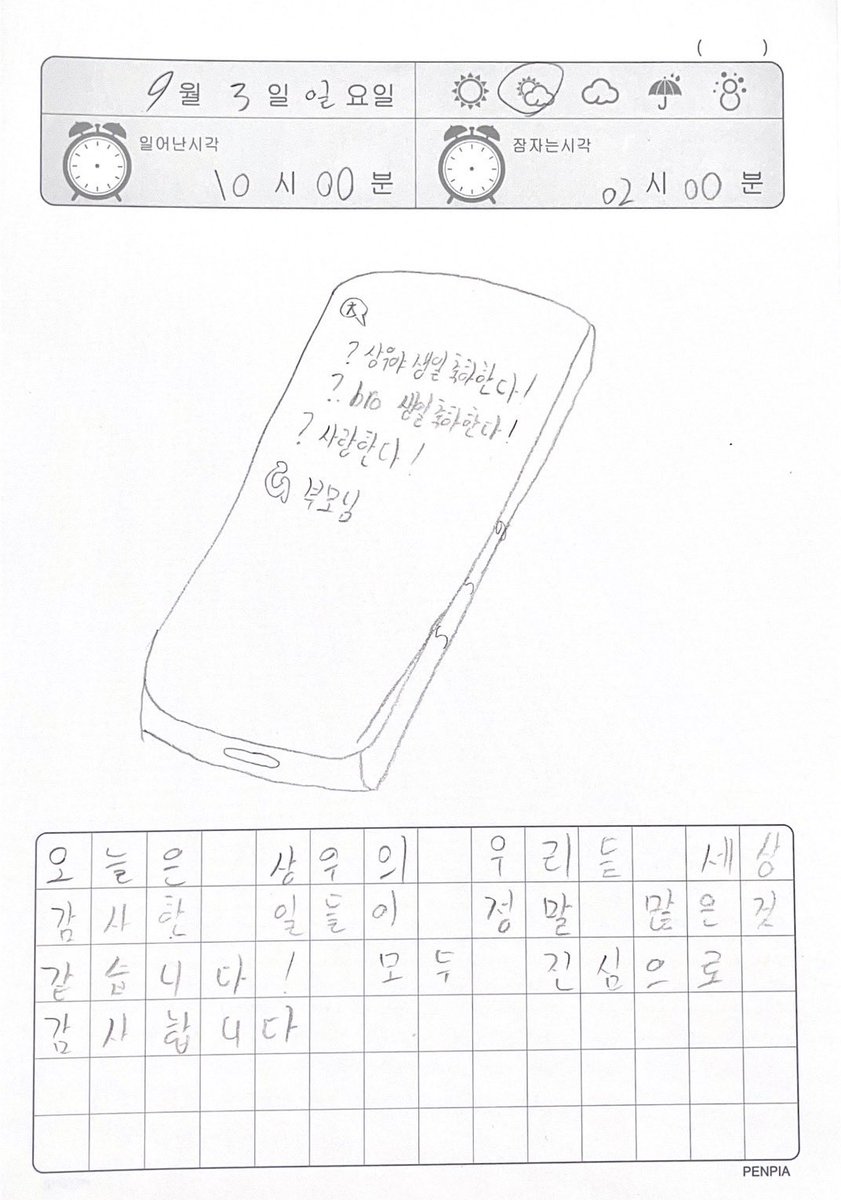 ( )
9월 3일 일요일
일어난시각
10시 00분
잠자는시각
02시 00분
? 상우야 생일 축하한다!
? bro 생일 축하한다!
? 사랑한다!
부모님
오늘은 상우의 우리들 세상
감사한 일들이 정말 많은 것
같습니다! 모두 진심으로
감사합니다
PENPIA